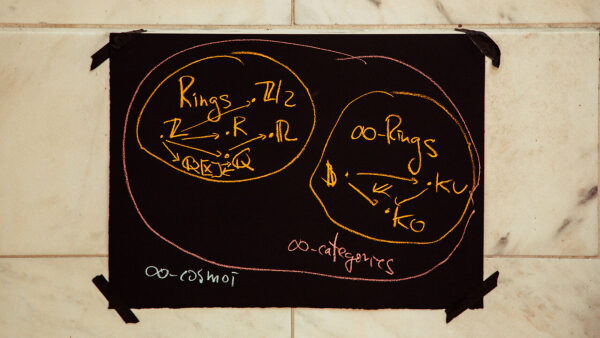 Rings ℤ/2
ℤ R ℝ
ℚ[x] ℚ
∞-Rings
𝕊 KU
KO
∞-categories
∞-cosmoi